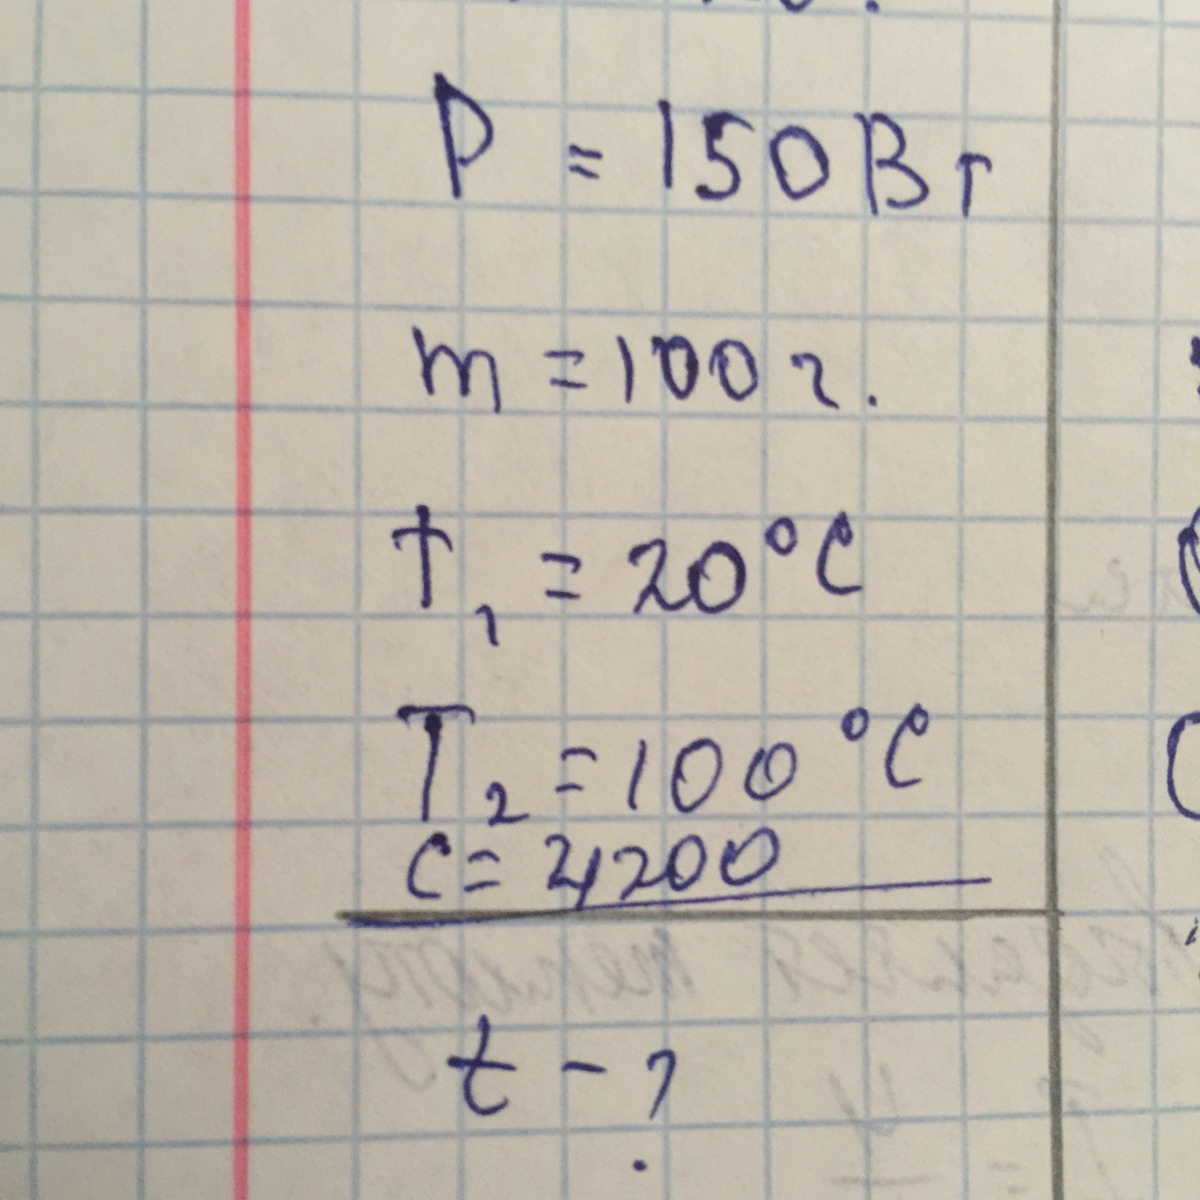 P = 150 Вт
m = 100 г.
t₁ = 20 °C
T₂ = 100 °C
c = 4200
t - ?